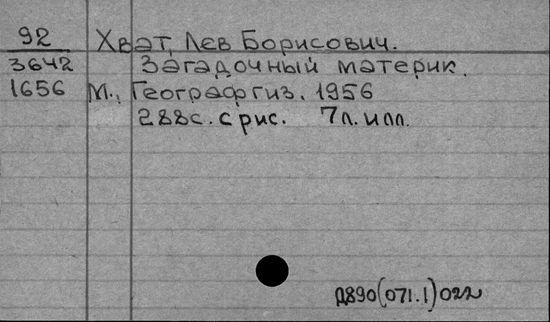 92 Хват, Лев Борисович.
3642 Загадочный материк.
1656 М., Географгиз. 1956
288с. с рис. 7л. илл.
Д890(071.1)022